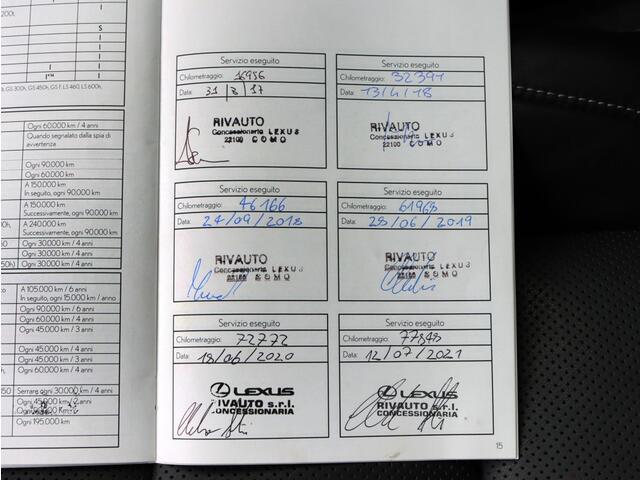 200t,
S
I
I
I
I
I
I™ I
GS 300h, GS 450h, GS F, LS 460, LS 600h,
Ogni 60.000 km / 4 anni
Quando segnalato dalla spia di
avvertenza
Ogni 90.000 km
Ogni 60.000 km
A 150.000 km
In seguito, ogni 90.000 km
A 150.000 km
Successivamente, ogni 90.000 km
A 240.000 km
Successivamente, ogni 90.000 km
Ogni 30.000 km / 4 anni
Ogni 30.000 km / 4 anni
A 105.000 km / 6 anni
In seguito, ogni 15.000 km / anno
Ogni 90.000 km / 6 anni
Ogni 60.000 km / 4 anni
Ogni 45.000 km / 3 anni
Ogni 45.000 km / 3 anni
Ogni 60.000 km / 4 anni
Serrare ogni 30.000 km / 4 anni
Ogni 195.000 km
Servizio eseguito
Chilometraggio: 16956
Data: 31/3/17
RIVAUTO
Concessionaria LEXUS
22100 COMO
Servizio eseguito
Chilometraggio: 32391
Data: 13/4/18
RIVAUTO
Concessionaria LEXUS
22100 COMO
Servizio eseguito
Chilometraggio: 46166
Data: 24/09/2018
RIVAUTO
Concessionaria LEXUS
22100 COMO
Servizio eseguito
Chilometraggio: 61968
Data: 28/06/2019
RIVAUTO
Concessionaria LEXUS
22100 COMO
Servizio eseguito
Chilometraggio: 72772
Data: 18/06/2020
LEXUS
RIVAUTO s.r.l.
CONCESSIONARIA
Servizio eseguito
Chilometraggio: 77848
Data: 12/07/2021
LEXUS
RIVAUTO s.r.l.
CONCESSIONARIA
15